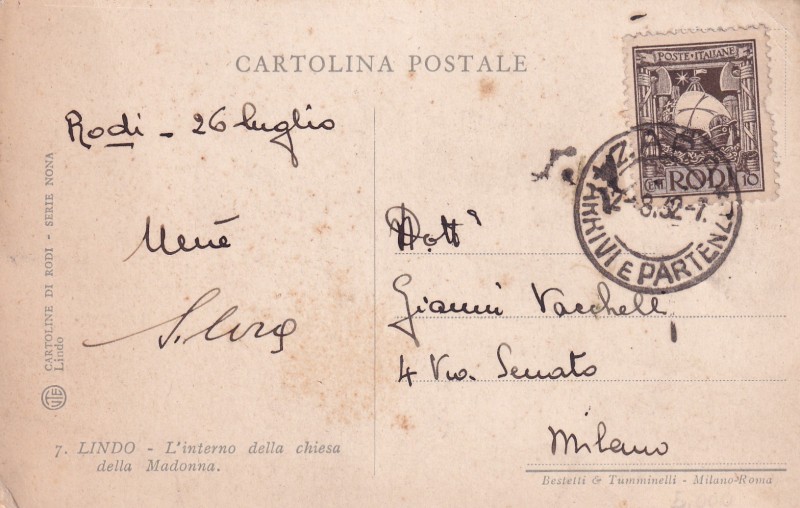 CARTOLINA POSTALE
Rodi - 26 luglio
Mené
CARTOLINE DI RODI - SERIE NONA
Lindo
7. LINDO - L'interno della chiesa
della Madonna.
POSTE·ITALIANE
CENT RODI 10
2-8.32-7.
ARRIVI E PARTENZE
Dott
Gianni Vacchelli
4 Via Senato
Milano
Bestetti & Tumminelli - Milano-Roma